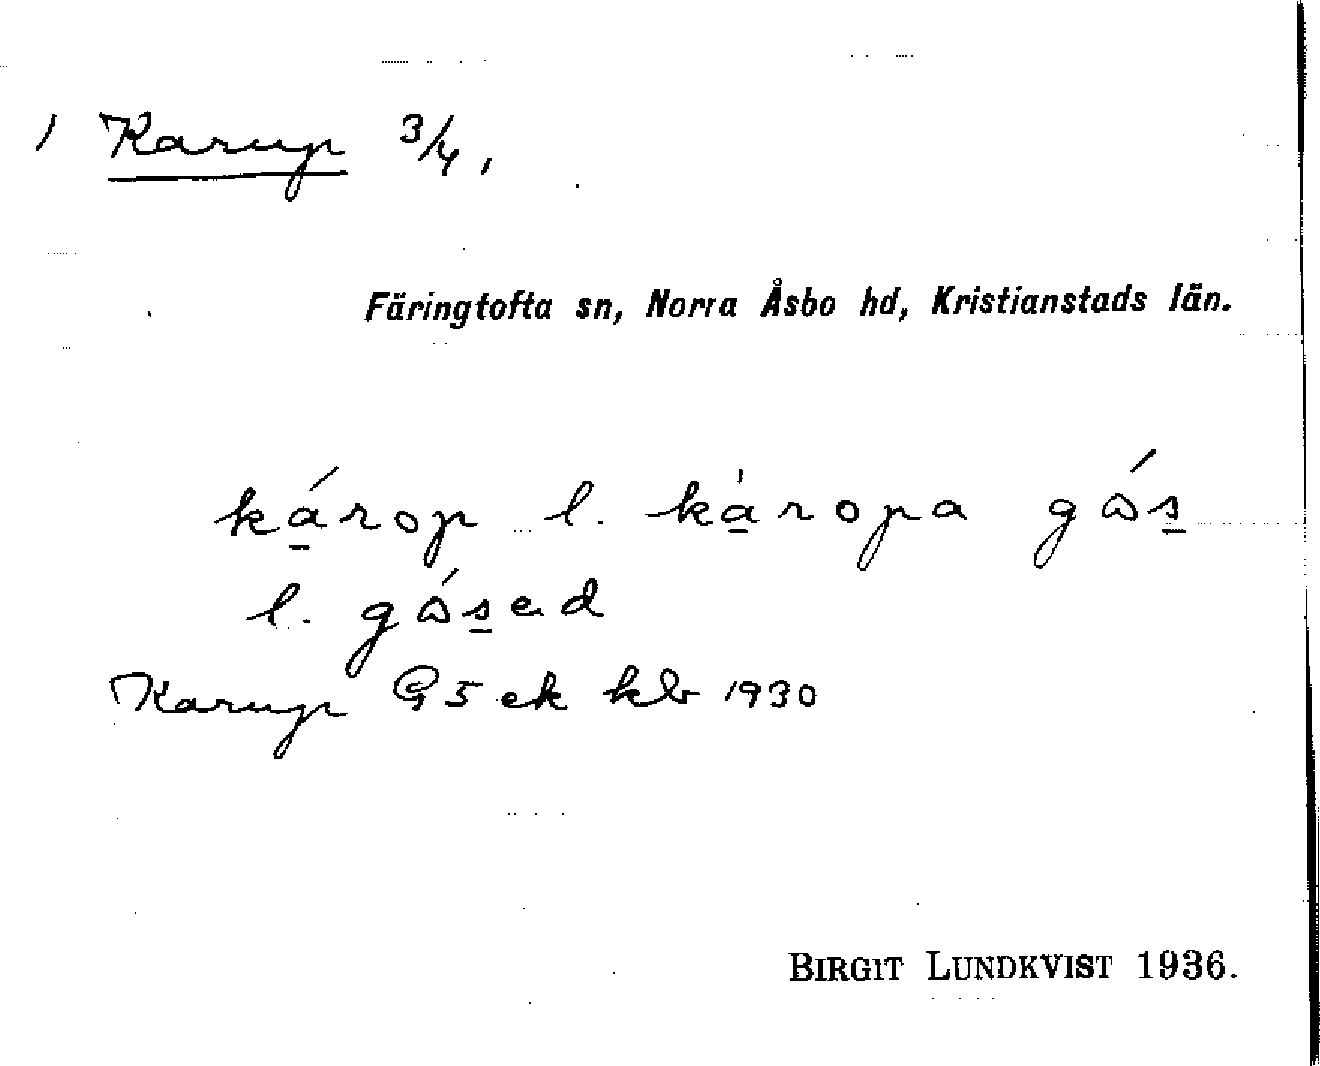 1 Karup 3/4,
Färingtofta sn, Norra Åsbo hd, Kristianstads län.
ká̱rop l. kà̱ropa gɷ́s̱
l. gɷ́s̱ed
Karup G5 ek kb 1930
BIRGIT LUNDKVIST 1936.